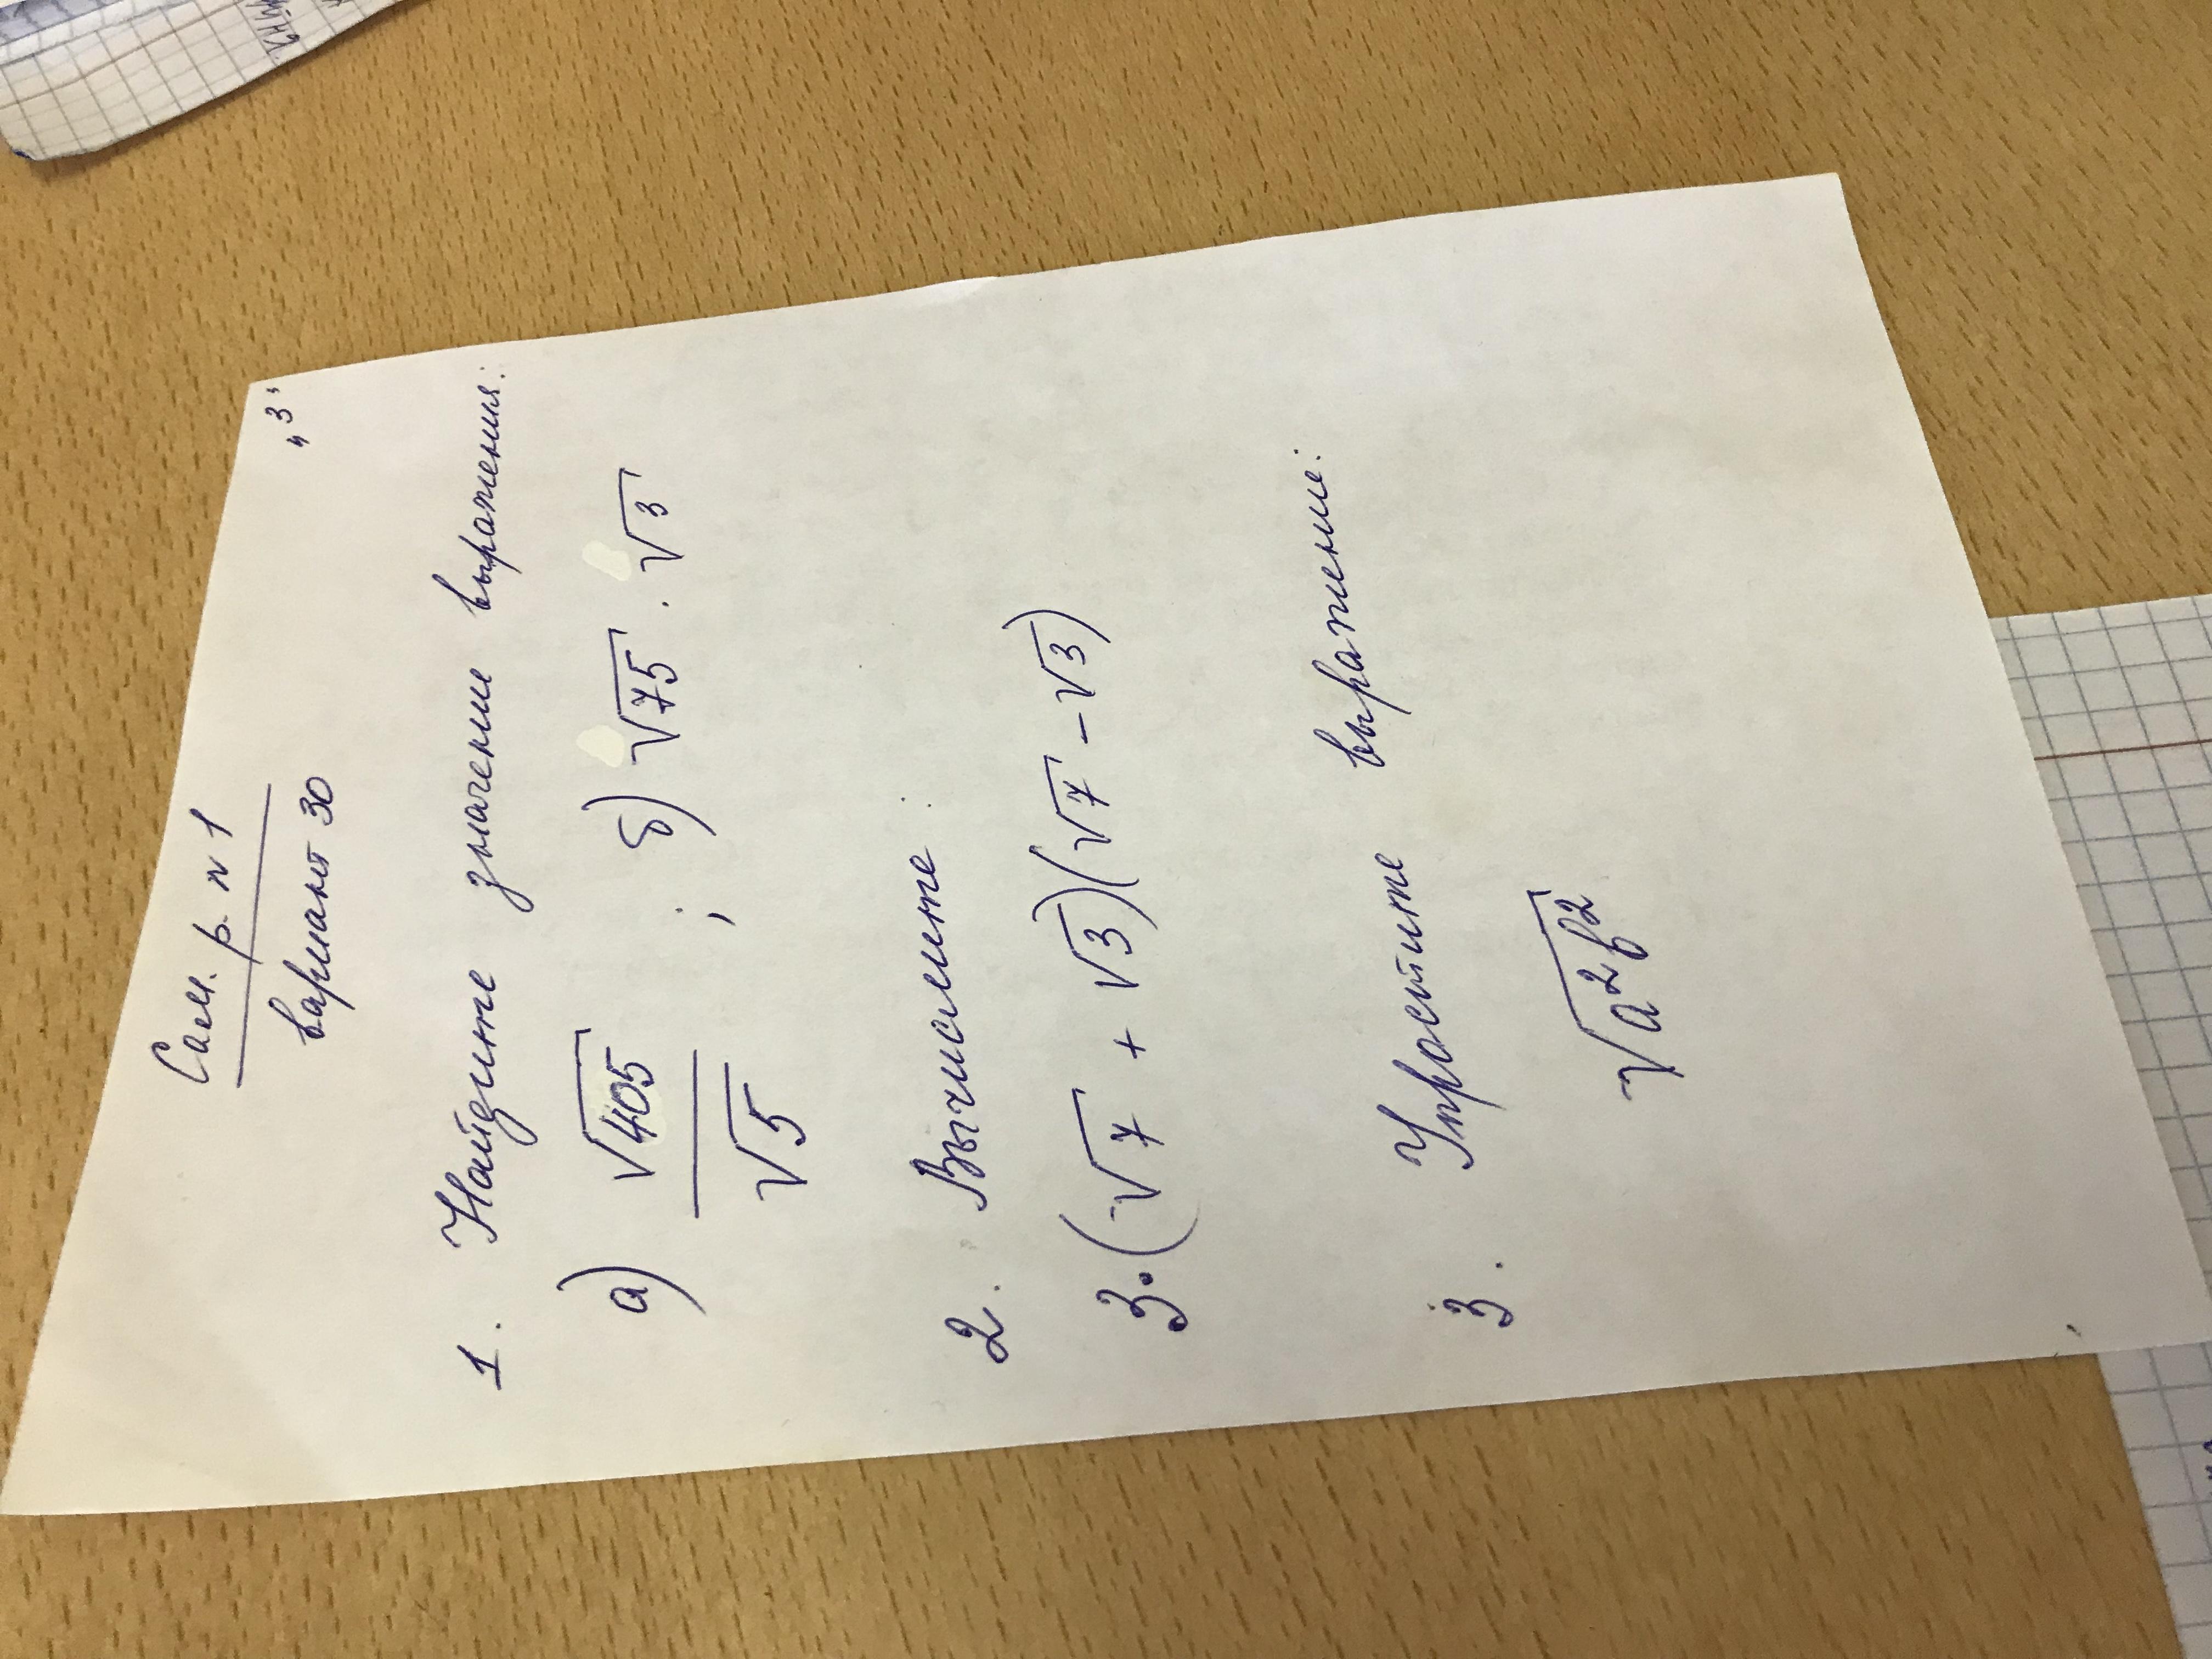 Сам. р. №1
вариант 30
„3"
1. Найдите значение выражения:
а) √405 / √5 ; б) √75 · √3
2. Вычислите
3·(√7 + √3)(√7 - √3)
3. Упростите выражение:
√a²b²